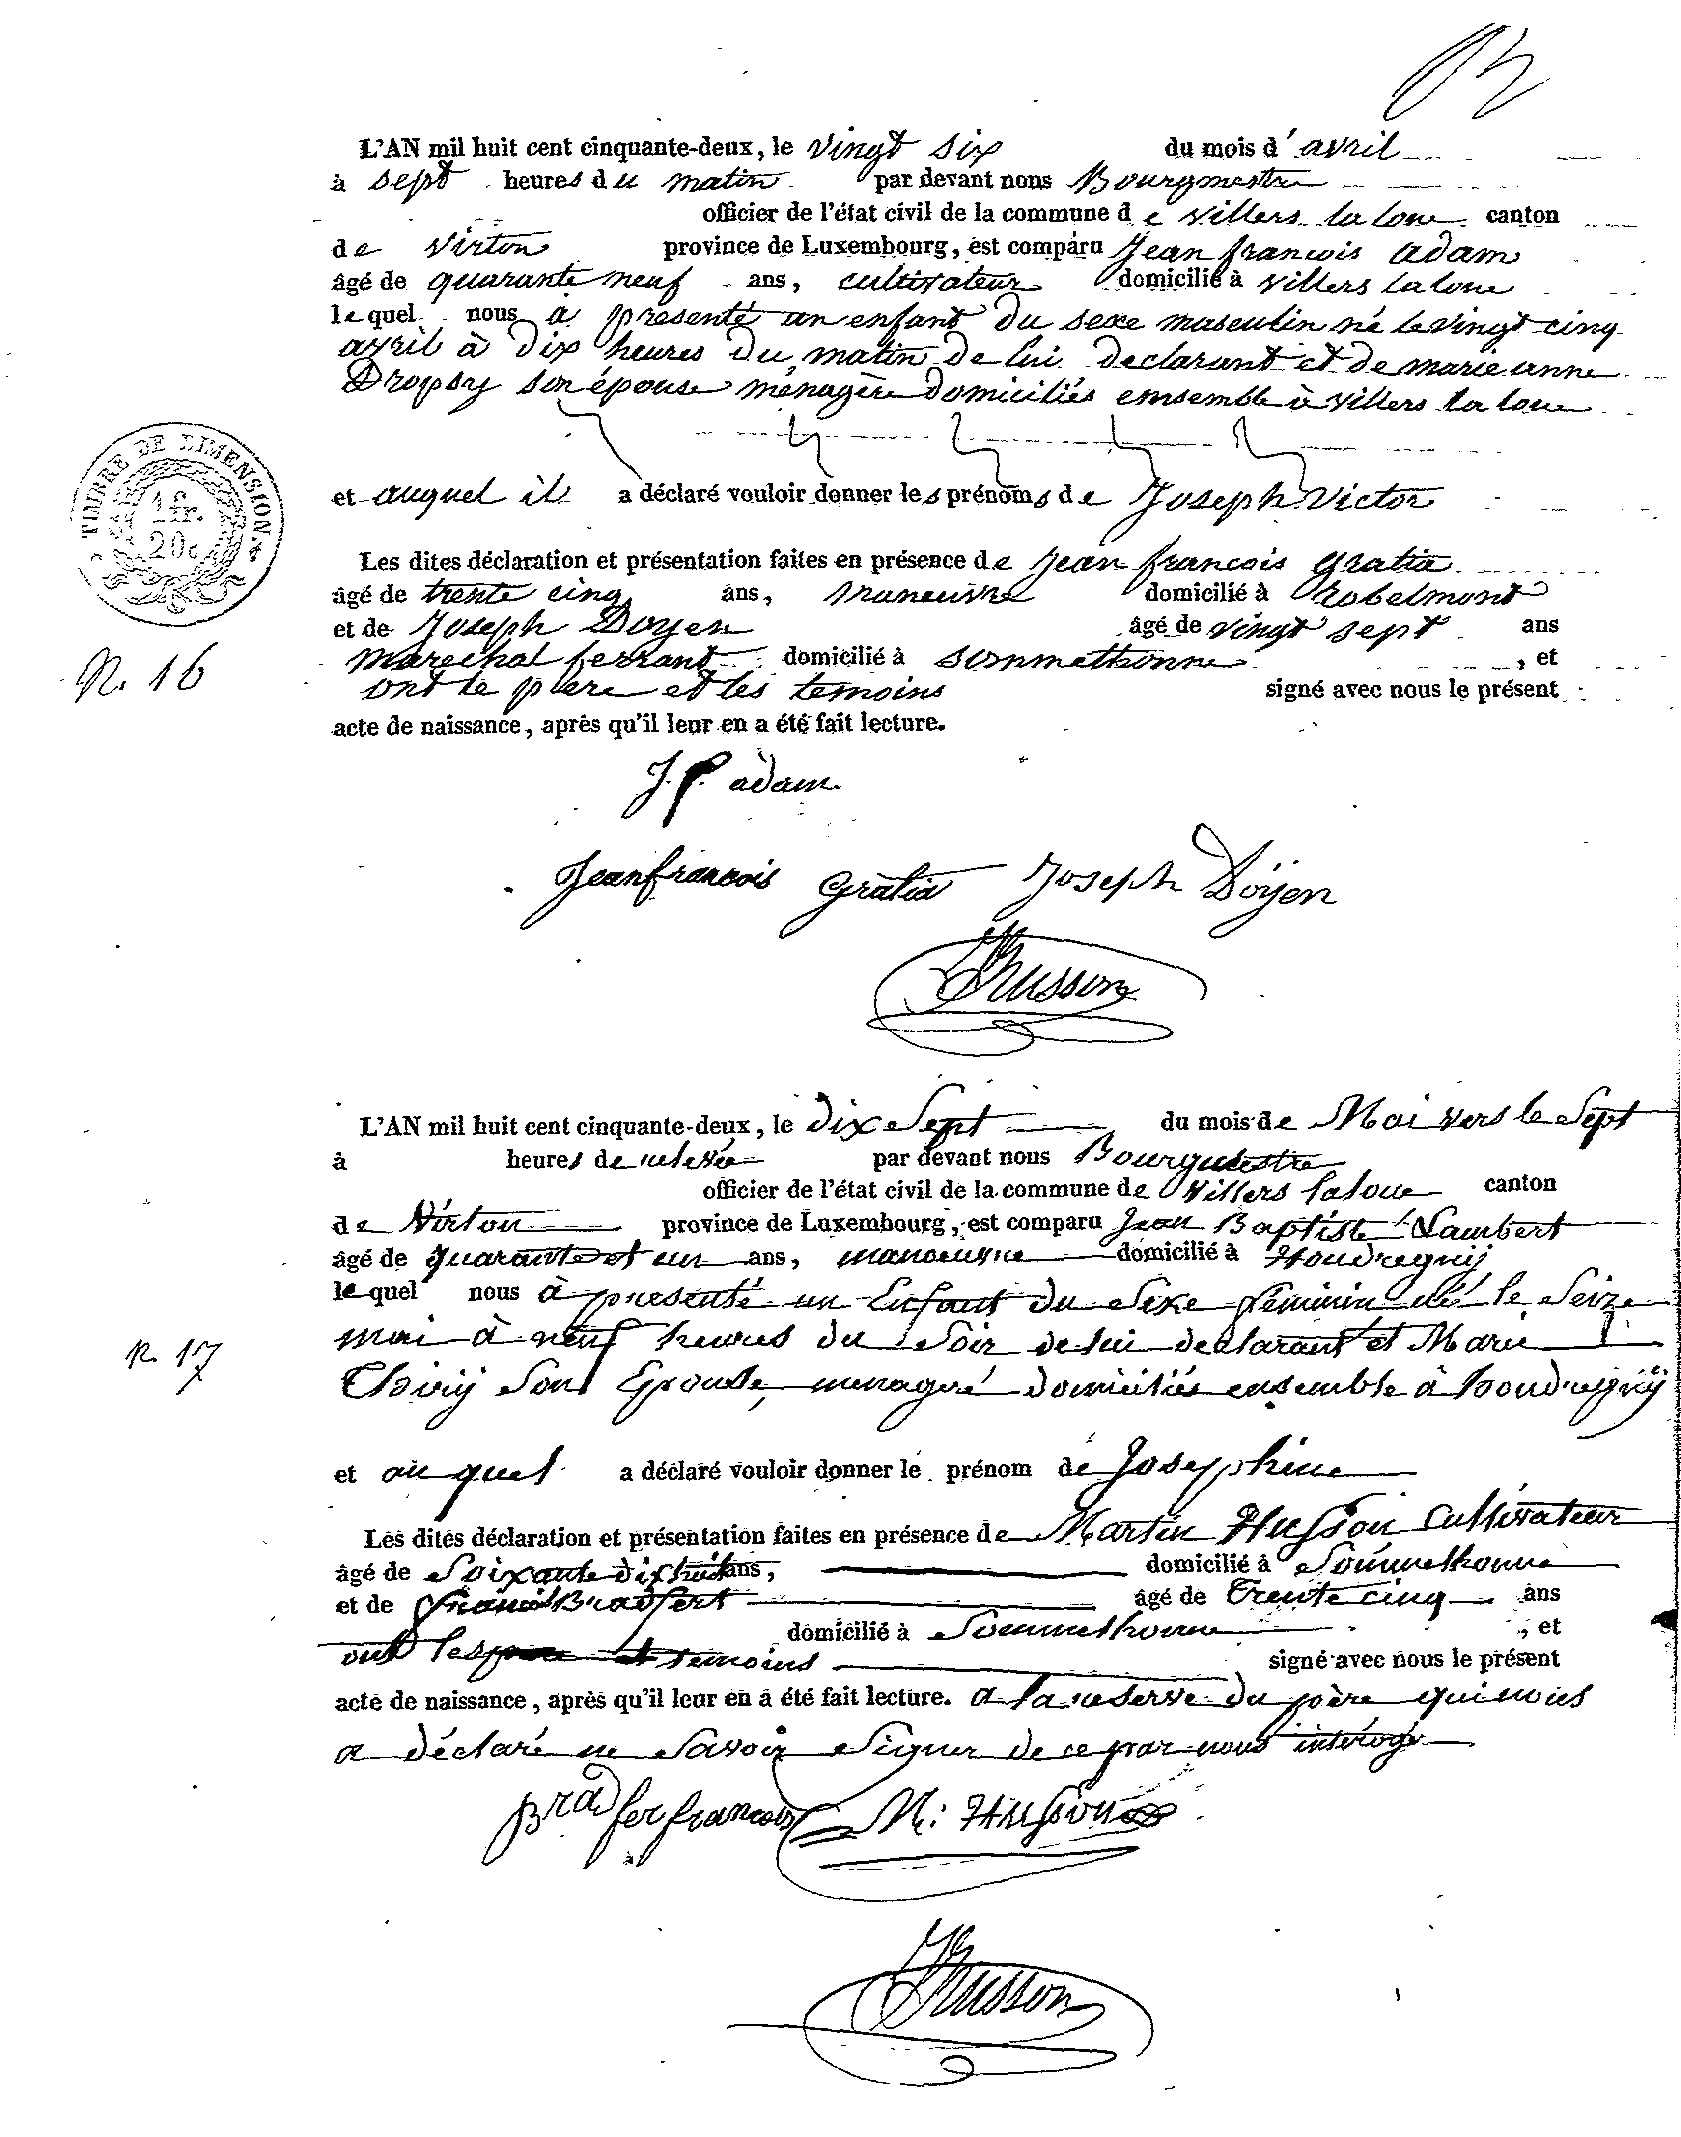 L'AN mil huit cent cinquante-deux, le vingt six du mois d'avril
à sept heures du matin par devant nous Bourgmestre
officier de l'état civil de la commune de villers la loue canton
de Virton province de Luxembourg, est comparu Jean françois adam
âgé de quarante neuf ans, cultivateur domicilié à villers la loue
lequel nous a présenté un enfant du sexe masculin né le vingt cinq
avril à dix heures du matin de lui declarant et de marie anne
Dropsy son épouse ménagère domiciliés emsemble à villers la loue
TIMBRE DE DIMENSION
1 fr.
20 c
et auquel il a déclaré vouloir donner les prénoms de Joseph Victor
Les dites déclaration et présentation faites en présence de Jean françois gratia
âgé de trente cinq ans, maneuvre domicilié à robelmont
et de Joseph Doyen âgé de vingt sept ans
marechal ferrant domicilié à sommethonne, et
N. 16
ont le père et les temoins signé avec nous le présent
acte de naissance, après qu'il leur en a été fait lecture.
J. f. adam
Jean francois gratia Joseph Doijen
Husson
L'AN mil huit cent cinquante-deux, le dix Sept du mois de Mai vers le Sept
à heures de relevée par devant nous Bourgmestre
officier de l'état civil de la commune de Villers laloue canton
de Virton province de Luxembourg, est comparu Jean Baptiste Lambert
âgé de quarante et un ans, manoeuvre domicilié à Houdregnij
lequel nous à presenté un Enfant du Sexe féminin né le Seize
mai à neuf heures du Soir de lui declarant et Marie
N. 17
Son Epouse, menageré domiciliés ensemble à houdregnij
et au quel a déclaré vouloir donner le prénom de Josephine
Les dites déclaration et présentation faites en présence de Martin Husson Cultivateur
âgé de Soixante dix huit ans, domicilié à Sommethonne
et de François Bradfert âgé de Trente cinq ans
domicilié à Sommethonne, et
ont les père et temoins signé avec nous le présent
acte de naissance, après qu'il leur en a été fait lecture. a la reserve du père qui nous
a déclaré ne Savoir Signer de ce par nous intérogé
Bradfer francois M: Husson
Husson